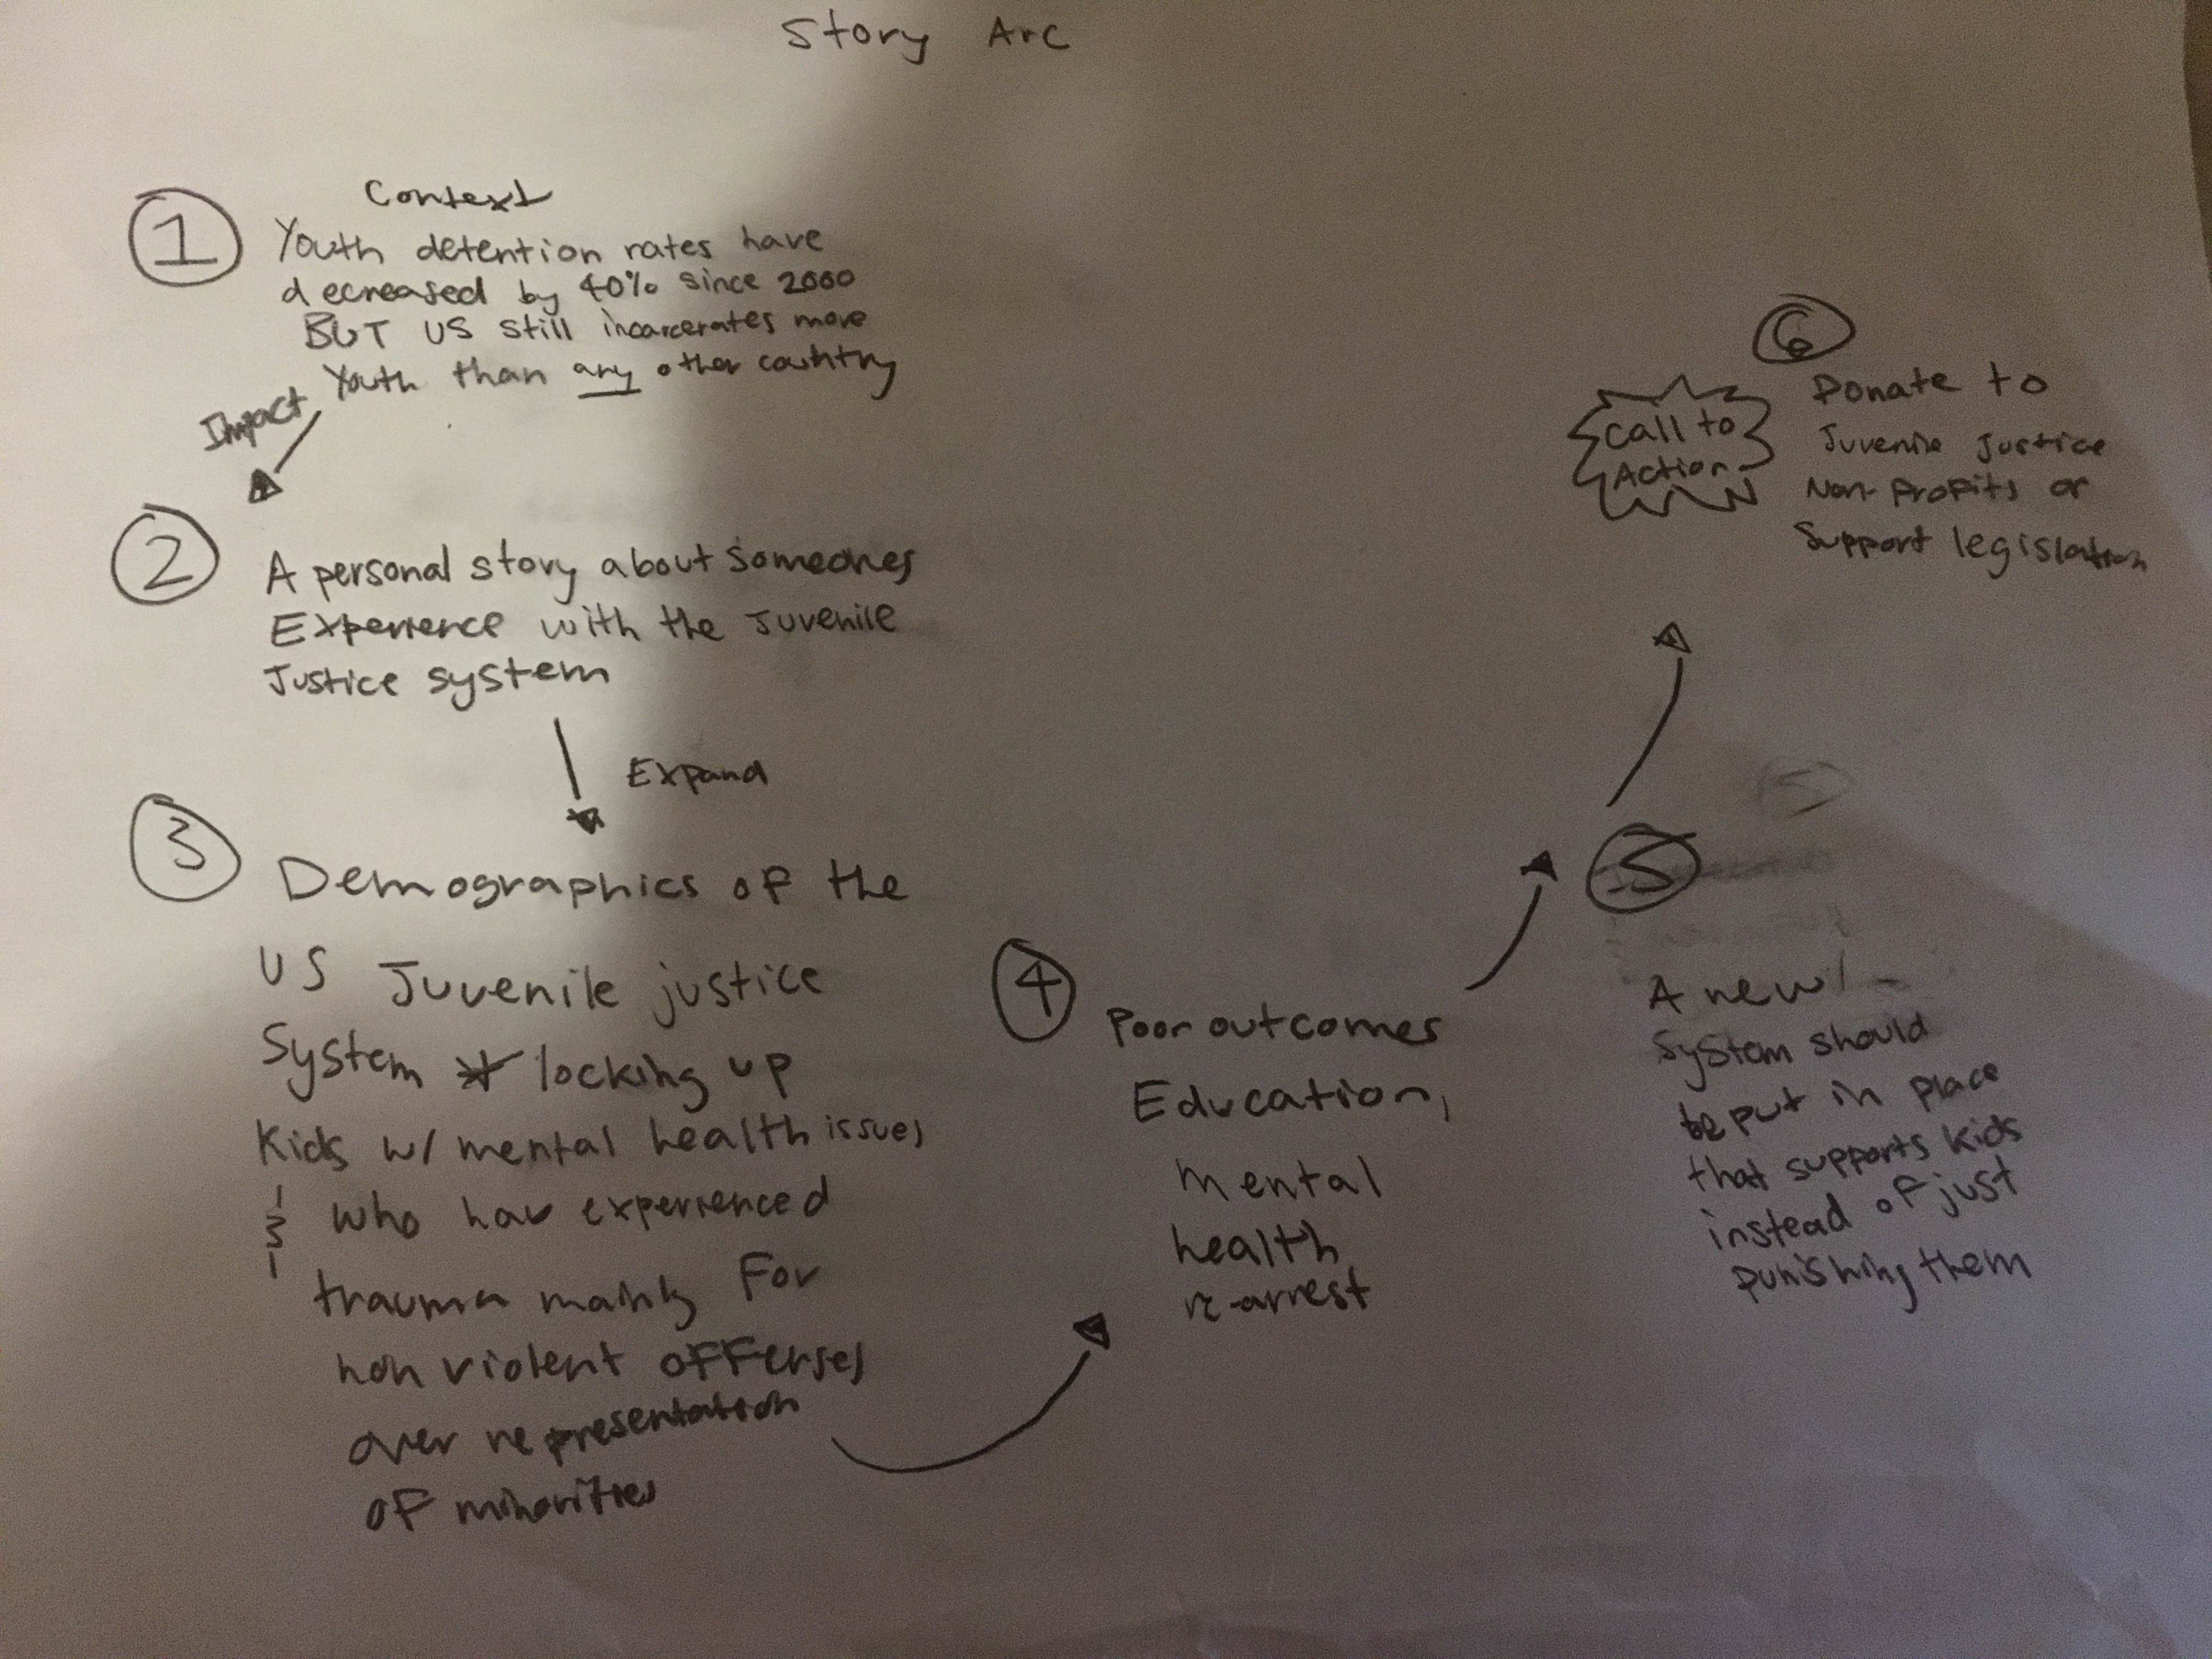 Story Arc
1
Context
Youth detention rates have
decreased by 40% since 2000
BUT US still incarcerates more
Youth than any other country
Impact
2
A personal story about someones
Experience with the Juvenile
Justice system
Expand
3
Demographics of the
US Juvenile justice
System * locking up
Kids w/ mental health issues
& who hav experienced
trauma mainly For
non violent offenses
over representation
of minorities
4
Poor outcomes
Education,
mental
health
re-arrest
5
A new
System should
be put in place
that supports kids
instead of just
punishing them
6
Call to
Action
Donate to
Juvenile Justice
Non-Profits or
Support legislation